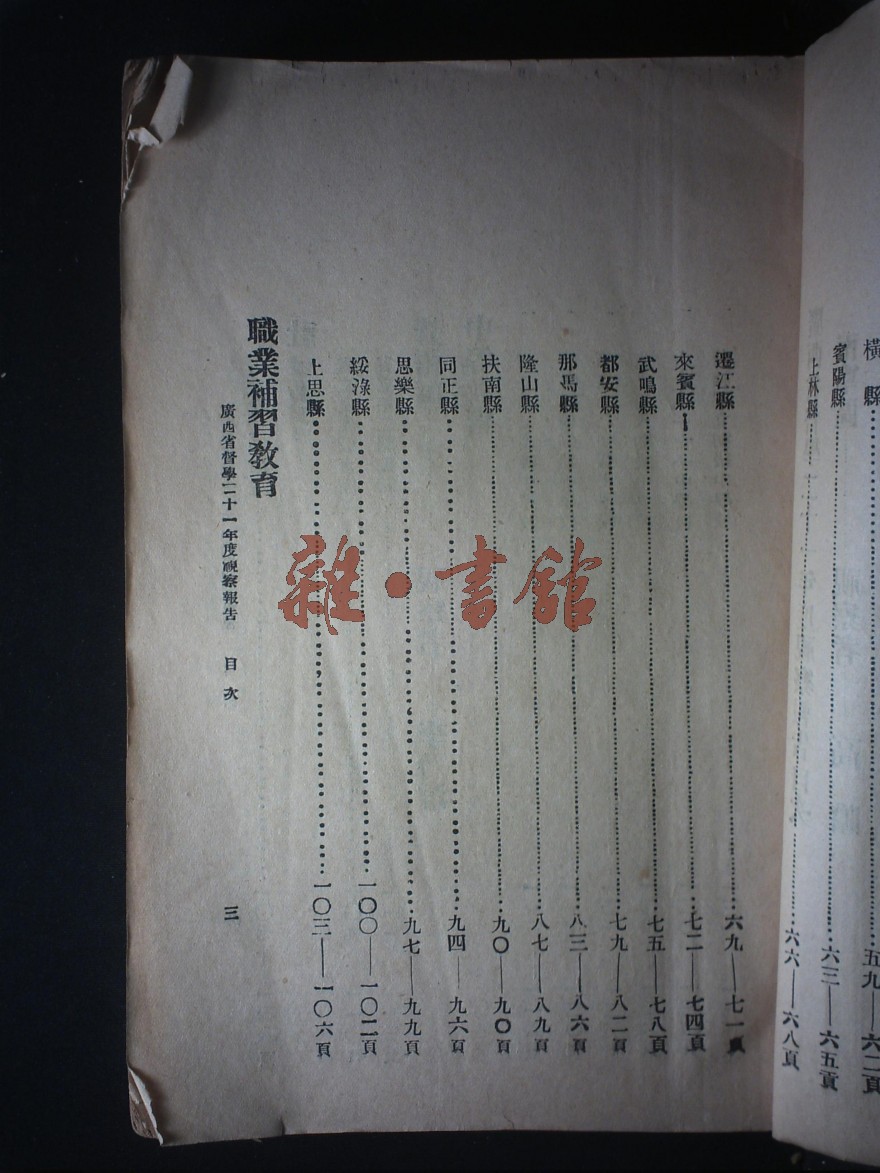 橫縣……五九——六二頁
賓陽縣……六三——六五頁
上林縣……六六——六八頁
遷江縣……六九——七一頁
來賓縣……七二——七四頁
武鳴縣……七五——七八頁
都安縣……七九——八二頁
那馬縣……八三——八六頁
隆山縣……八七——八九頁
扶南縣……九〇——九〇頁
同正縣……九四——九六頁
思樂縣……九七——九九頁
綏淥縣……一〇〇——一〇二頁
上思縣……一〇三——一〇六頁
職業補習教育
廣西省督學二十一年度視察報告 目次 三
雜·書館